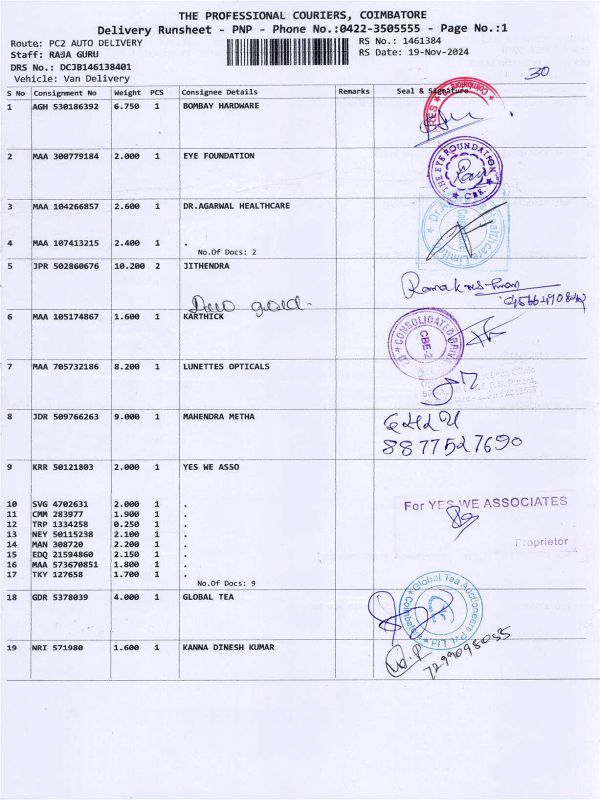 THE PROFESSIONAL COURIERS, COIMBATORE
Delivery Runsheet - PNP - Phone No.:0422-3505555 - Page No.:1
Route: PC2 AUTO DELIVERY RS No.: 1461384
Staff: RAJA GURU RS Date: 19-Nov-2024
DRS No.: DCJB146138401
Vehicle: Van Delivery
30
S No Consignment No Weight PCS Consignee Details Remarks Seal & Signature
1 AGH 530186392 6.750 1 BOMBAY HARDWARE
2 MAA 300779184 2.000 1 EYE FOUNDATION
THE EYE FOUNDATION
CBE.
3 MAA 104266857 2.600 1 DR.AGARWAL HEALTHCARE
4 MAA 107413215 2.400 1 .
No.Of Docs: 2
5 JPR 502860676 10.200 2 JITHENDRA
6 MAA 105174867 1.600 1 KARTHICK
CONSOLIDATED
CBE-2
7 MAA 705732186 8.200 1 LUNETTES OPTICALS
8 JDR 509766263 9.000 1 MAHENDRA METHA
8877527690
9 KRR 50121803 2.000 1 YES WE ASSO
10 SVG 4702631 2.000 1 .
11 CMM 283977 1.900 1 .
12 TRP 1334258 0.250 1 .
13 NEY 50115238 2.100 1 .
14 MAN 308720 2.200 1 .
15 EDQ 21594860 2.150 1 .
16 MAA 573670851 1.800 1 .
17 TKY 127658 1.700 1 .
No.Of Docs: 9
For YES WE ASSOCIATES
Proprietor
18 GDR 5378039 4.000 1 GLOBAL TEA
Global Tea Auctioneers Pvt. Ltd
19 NRI 571980 1.600 1 KANNA DINESH KUMAR